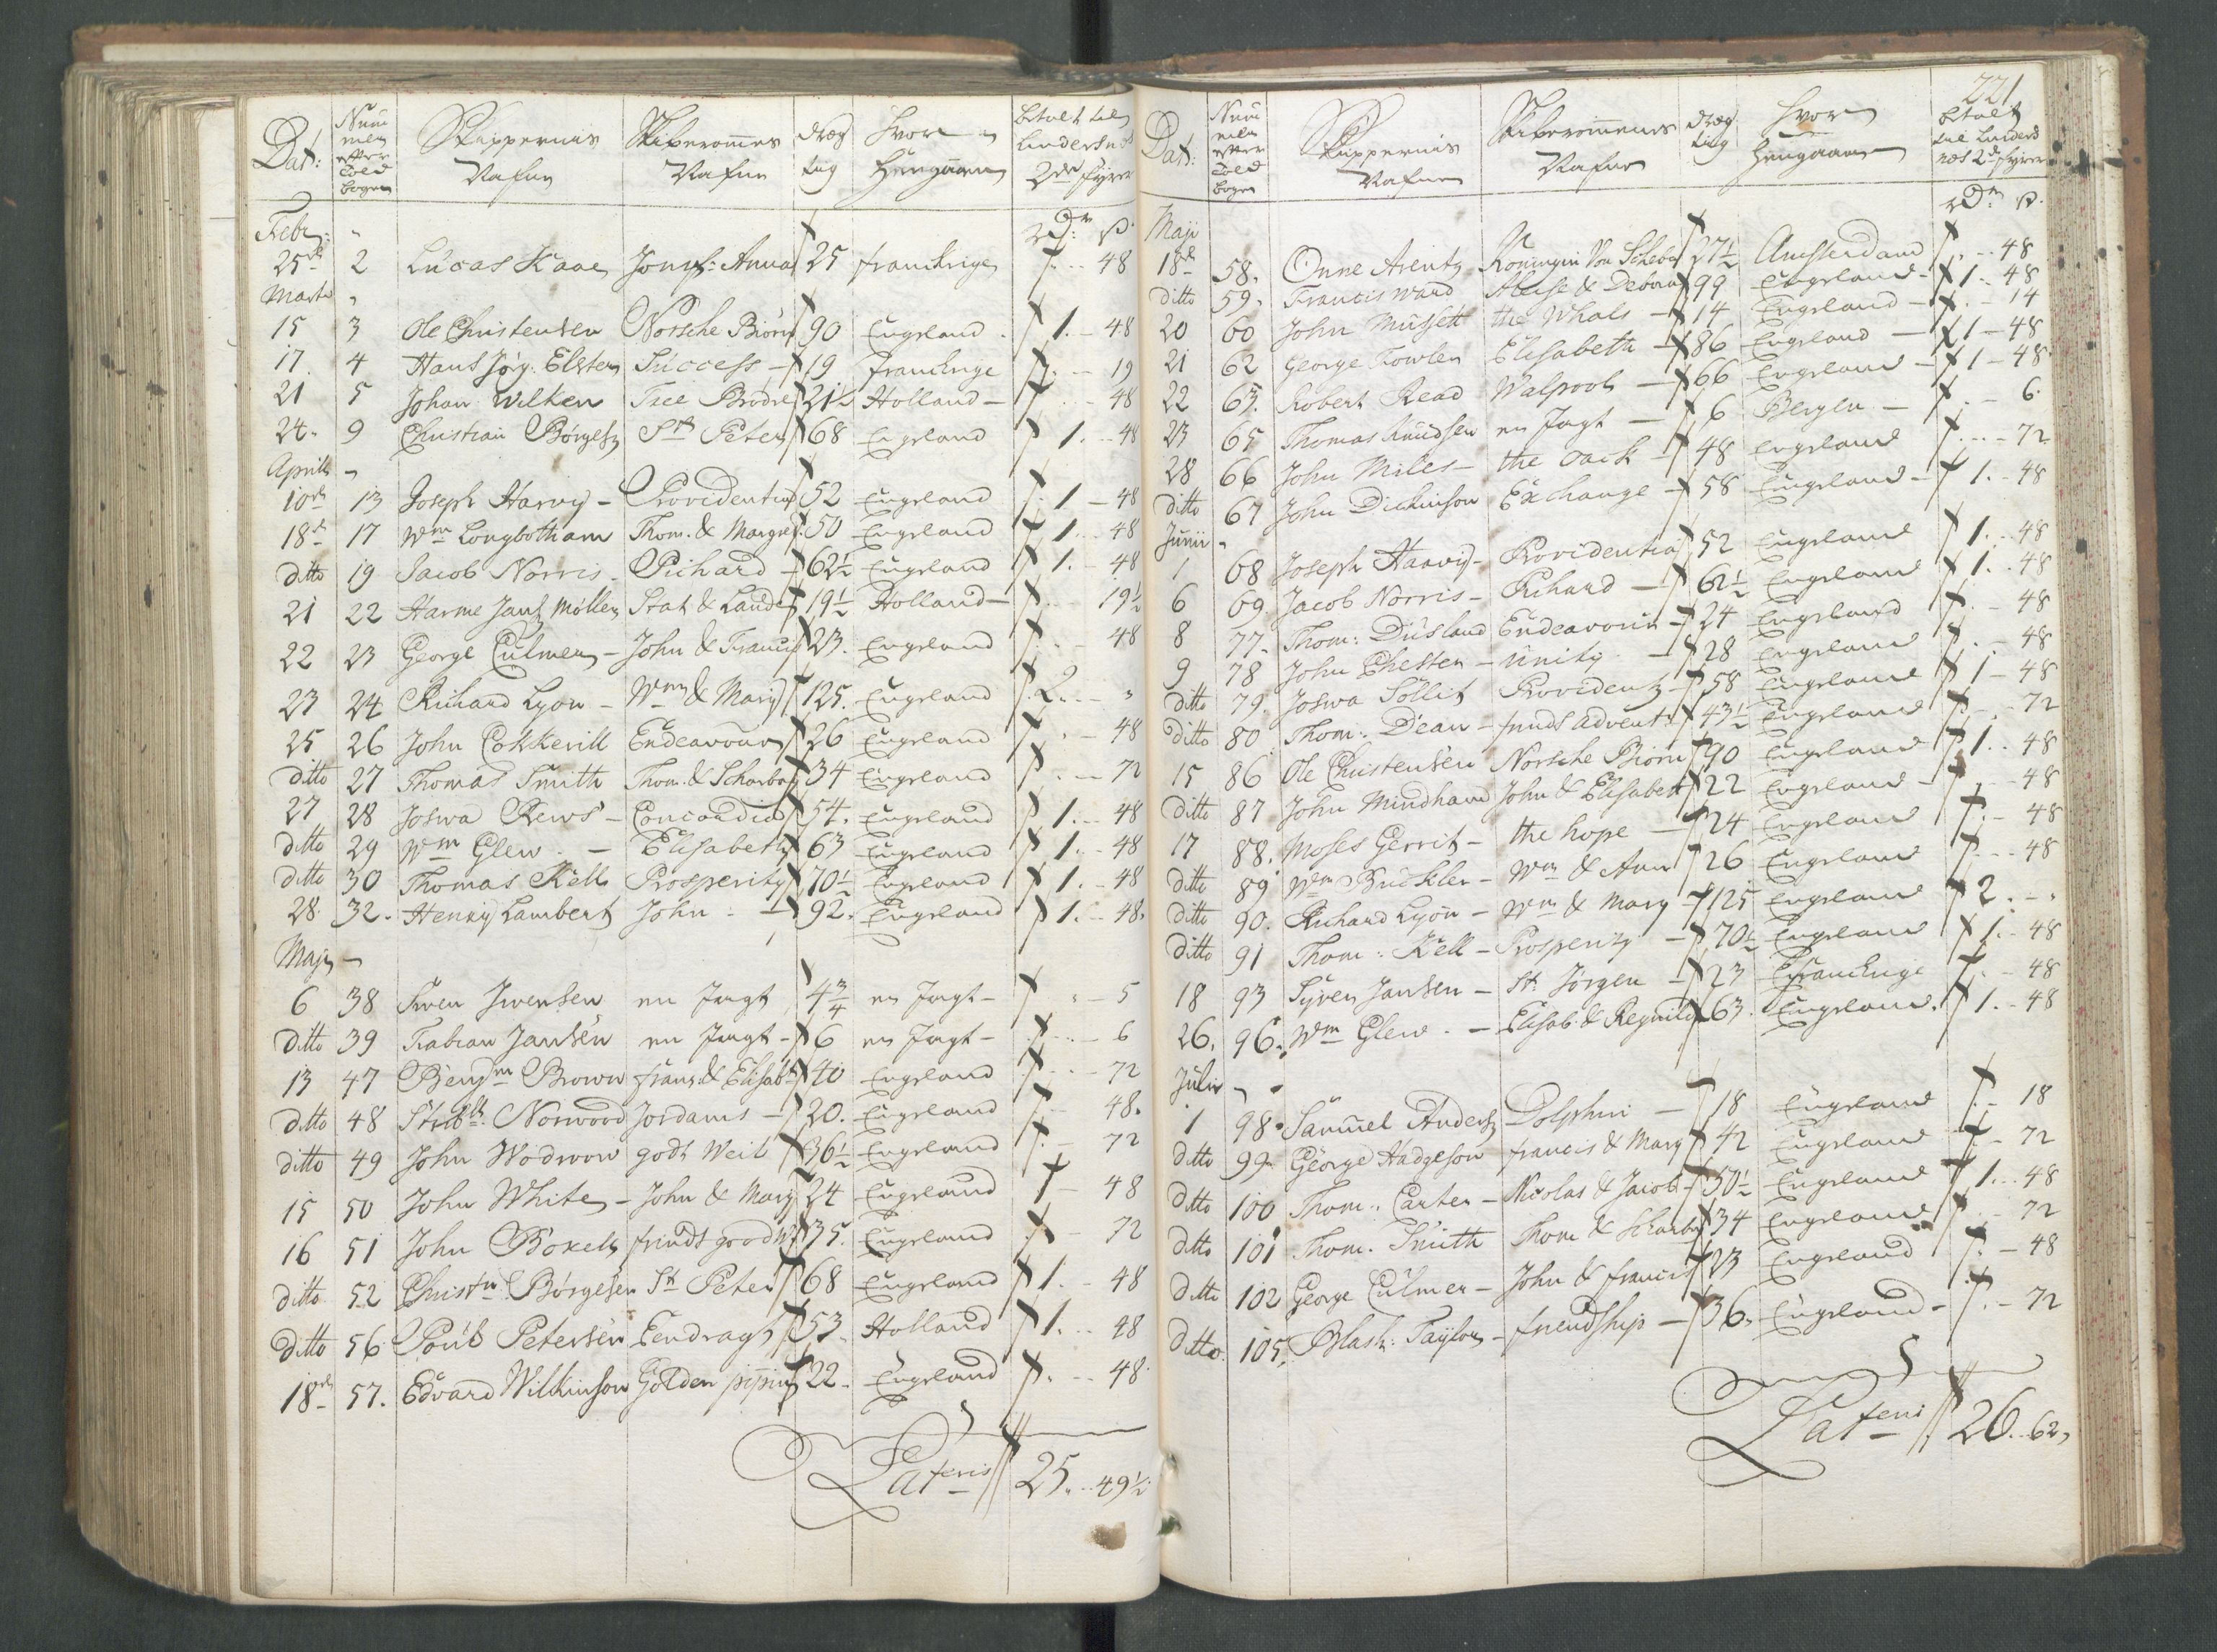 Dat: Num̅ meren efter Told bogen Skippernis Nafne Skiberommes Nafne dræg tig Hvor Hengaaer betalt til Lindersnes 2de fyrer
Rdr ß
Febr:
25de 2 Lucas Kaae Jomf: Anna 25 franckrige - 48
Marti
15 3 Ole Christensen Norsche Biørn 90 Engeland 1 - 48
17 4 Hans Jörg: Elster Success - 19 franckrige - 19
21 5 Johan Wilken Tree Brödre 21½ Holland - 48
24. 9 Christian Börges St Peter 68 Engeland 1. - 48
Aprill
10de 13 Joseph Harvij - Providentia 52 Engeland 1 - 48
18de 17 Wm Longbotham Thom. & Margret 50 Engeland 1 - 48
ditto 19 Jacob Norris - Richard - 62½ Engeland 1. - 48
21 22 Harme Jans Möller Stat & Lande 19½ Holland - 19½
22 23 George Culmer - John & Francis 23. Engeland - 48
23 24 Richard Lyon - Wm & Mary 125. Engeland 2. - "
25 26 John Cokkerill Endeavour 26 Engeland - 48
ditto 27 Thomas Smith Thom. & Scharbor 34 Engeland - 72
27 28 Joswa Rews - Concordia 54. Engeland 1. - 48
ditto 29 Wm Glew. - Elisabeth 63 Engeland 1. - 48
ditto 30 Thomas Kell Prosperity 70½ Engeland 1. - 48
28 32. Henry Lambert John - 92. Engeland 1. - 48.
Maji
6 38 Swen Jwersen en Jagt 4¾ en Jagt - 5
ditto 39 Fabian Jansen en Jagt - 6 en Jagt - 6
13 47 Benjm Brown frans & Elisabt 40 Engeland - 72
ditto 48 Norwood Jordams - 20. Engeland 48.
ditto 49 John Wodwow godt Weil 36½ Engeland - 72
15 50 John White - John & Mary 24 Engeland - 48
16 51 John Bokels frinds good W 35. Engeland - 72
ditto 52 Christn Börgesen St Peter 68 Engeland 1. - 48
ditto 56 Poul Petersen Eendragt 53 Holland 1. - 48
18de 57. Edvard Wilkinson Golden pipin 22. Engeland - 48
Lateris 25. - 49½
221
Dat: Num̅ meren efter Told bogen Skippernis Nafne Skiberommens Nafne dræg tig Hvor Hengaaer betalt til Linders nes 2de fyrer
Rdr ß.
Maji
18de 58. Onne Arents Koningin Von Scheba 27½ Amsterdam - 48
ditto 59. Francis Ward Abase & Debora 99 Engeland - 1 - 48
20 60 John Mussett the Whals - 14 Engeland - 14
21 62 George Fowler Elisabeth - 86 Engeland - 1 - 48
22 63. Robert Read Walpool - 66 Engeland - 1 - 48
23 65 Thomas Knudsen en Jagt - 6 Bergen - 6.
28 66 John Miles - the oack - 48 Engeland - 72
ditto 67 John Dickinson Exchange - 58 Engeland - 1. - 48
Junii
1 68 Joseph Haavij - Providentia 52 Engeland 1. - 48
6 69. Jacob Norris - Richard - 62½ Engeland 1. - 48
8 77. Thom: Dusland Endeavour - 24 Engeland - 48
9 78 John Chester - Unity - 28 Engeland - 48
ditto 79. Joswa Söllit Providents - 58 Engeland 1 - 48
ditto 80 Thom: Dean - frinds advent: 43½ Engeland - 72
15 86 Ole Christensen Norsche Biörn 90 Engeland 1. - 48
ditto 87 John Mindham John & Elisabett 22 Engeland - 48
17 88. Moses Gerrit - the hope - 24 Engeland - 48
ditto 89 Wm Buckler - Wm & Ann 26 Engeland - 48
ditto 90. Richard Lyon - Wm & Mary - 125 Engeland 2. - "
ditto 91 Thom: Kell - Prosperity - 70½ Engeland 1. - 48
18 93 Syver Jansen - St. Jörgen - 23 franckrige - 48
26. 96. Wm Glew. - Elisab: & Regnild 63. Engeland. 1. - 48
Julii
1 98. Samuel Anders Dolphin - 18 Engeland - 18
ditto 99. George Hadgeson francis & Mary 42 Engeland - 72
ditto 100 Thom: Carter - Nicolas & Jacob - 50½ Engeland 1. - 48
ditto 101 Thom. Smith Thom & Scharbor 34 Engeland - 72
ditto 102 George Culmer - John & francis 23 Engeland - 48
ditto. 105. Taylor - friendship - 36. Engeland - 72
Lateris 26. - 62.